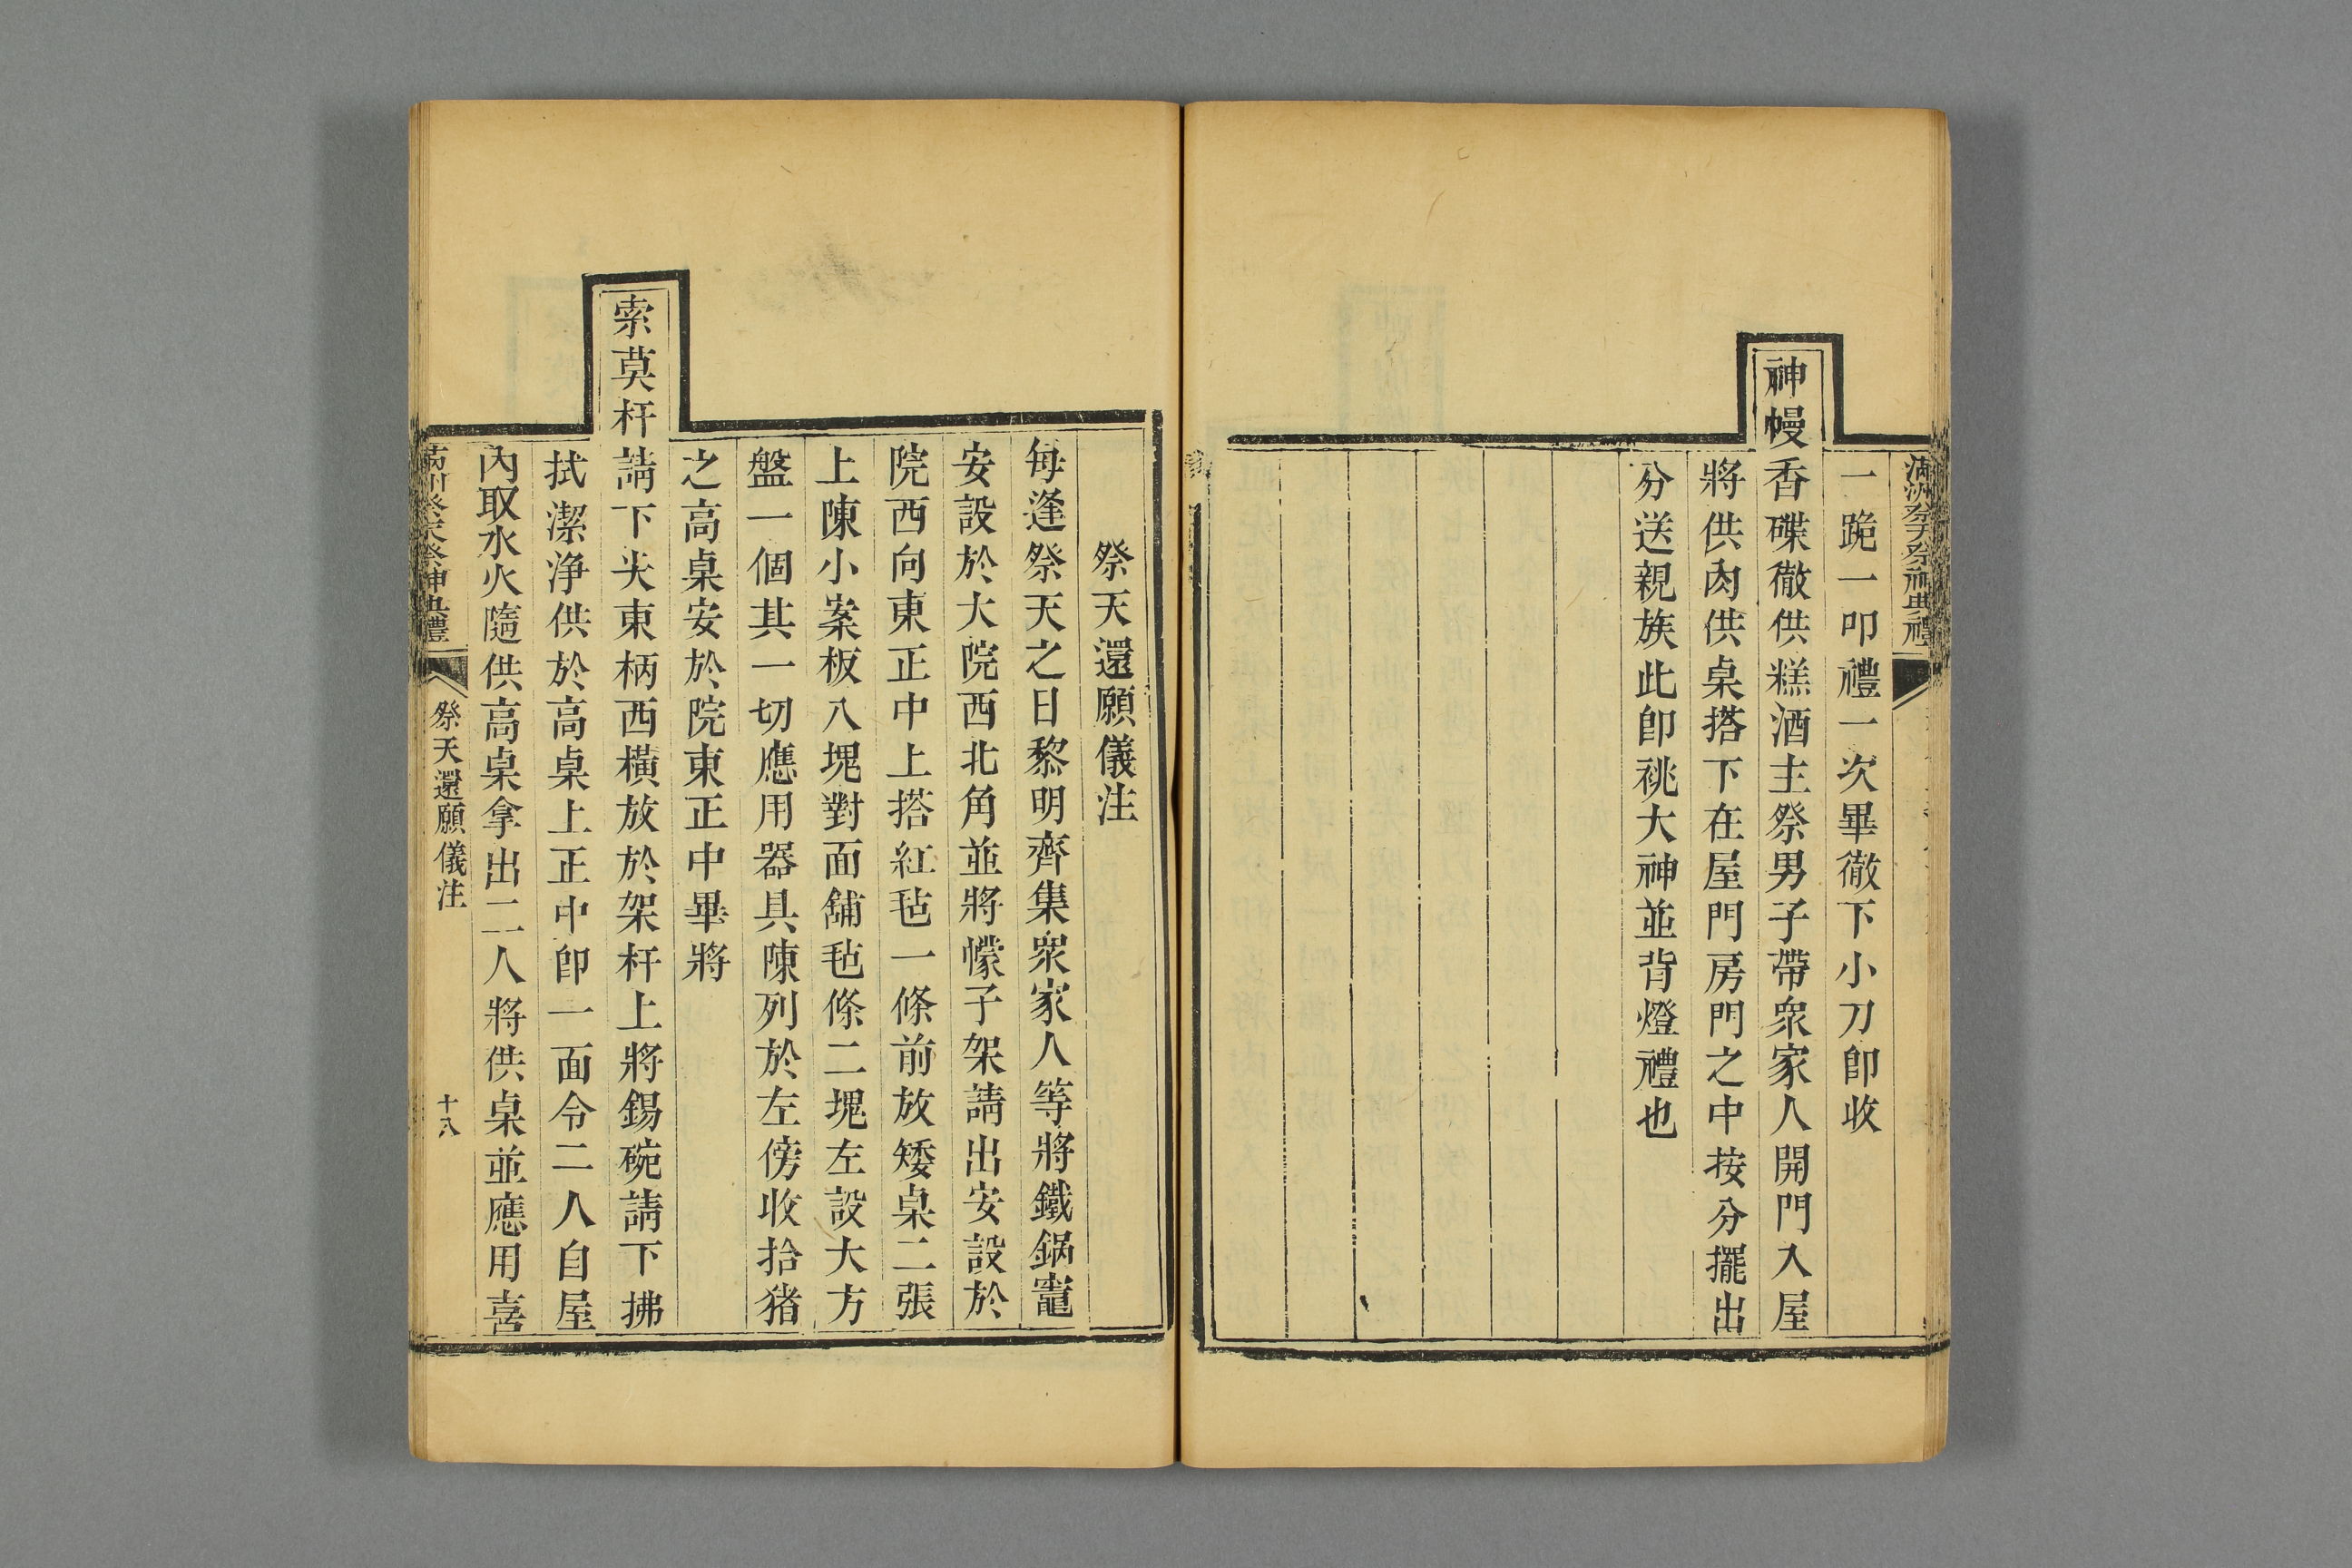 滿洲祭天祭神典禮
一跪一叩禮一次畢徹下小刀卽收
神幔香碟徹供糕酒主祭男子帶衆家人開門入屋
將供肉供桌搭下在屋門房門之中按分擺出
分送親族此卽祧大神並背燈禮也
祭天還願儀注
每逢祭天之日黎明齊集衆家人等將鐵鍋竈
安設於大院西北角並將幪子架請出安設於
院西向東正中上搭紅毡一條前放矮桌二張
上陳小案板八塊對面舖毡條二塊左設大方
盤一個其一切應用器具陳列於左傍收拾猪
之高桌安於院東正中畢將
索莫杆請下尖東柄西橫放於架杆上將錫碗請下拂
拭潔淨供於高桌上正中卽一面令二人自屋
內取水火隨供高桌拿出二人將供桌並應用喜
滿洲祭天祭神典禮
祭天還願儀注
十八